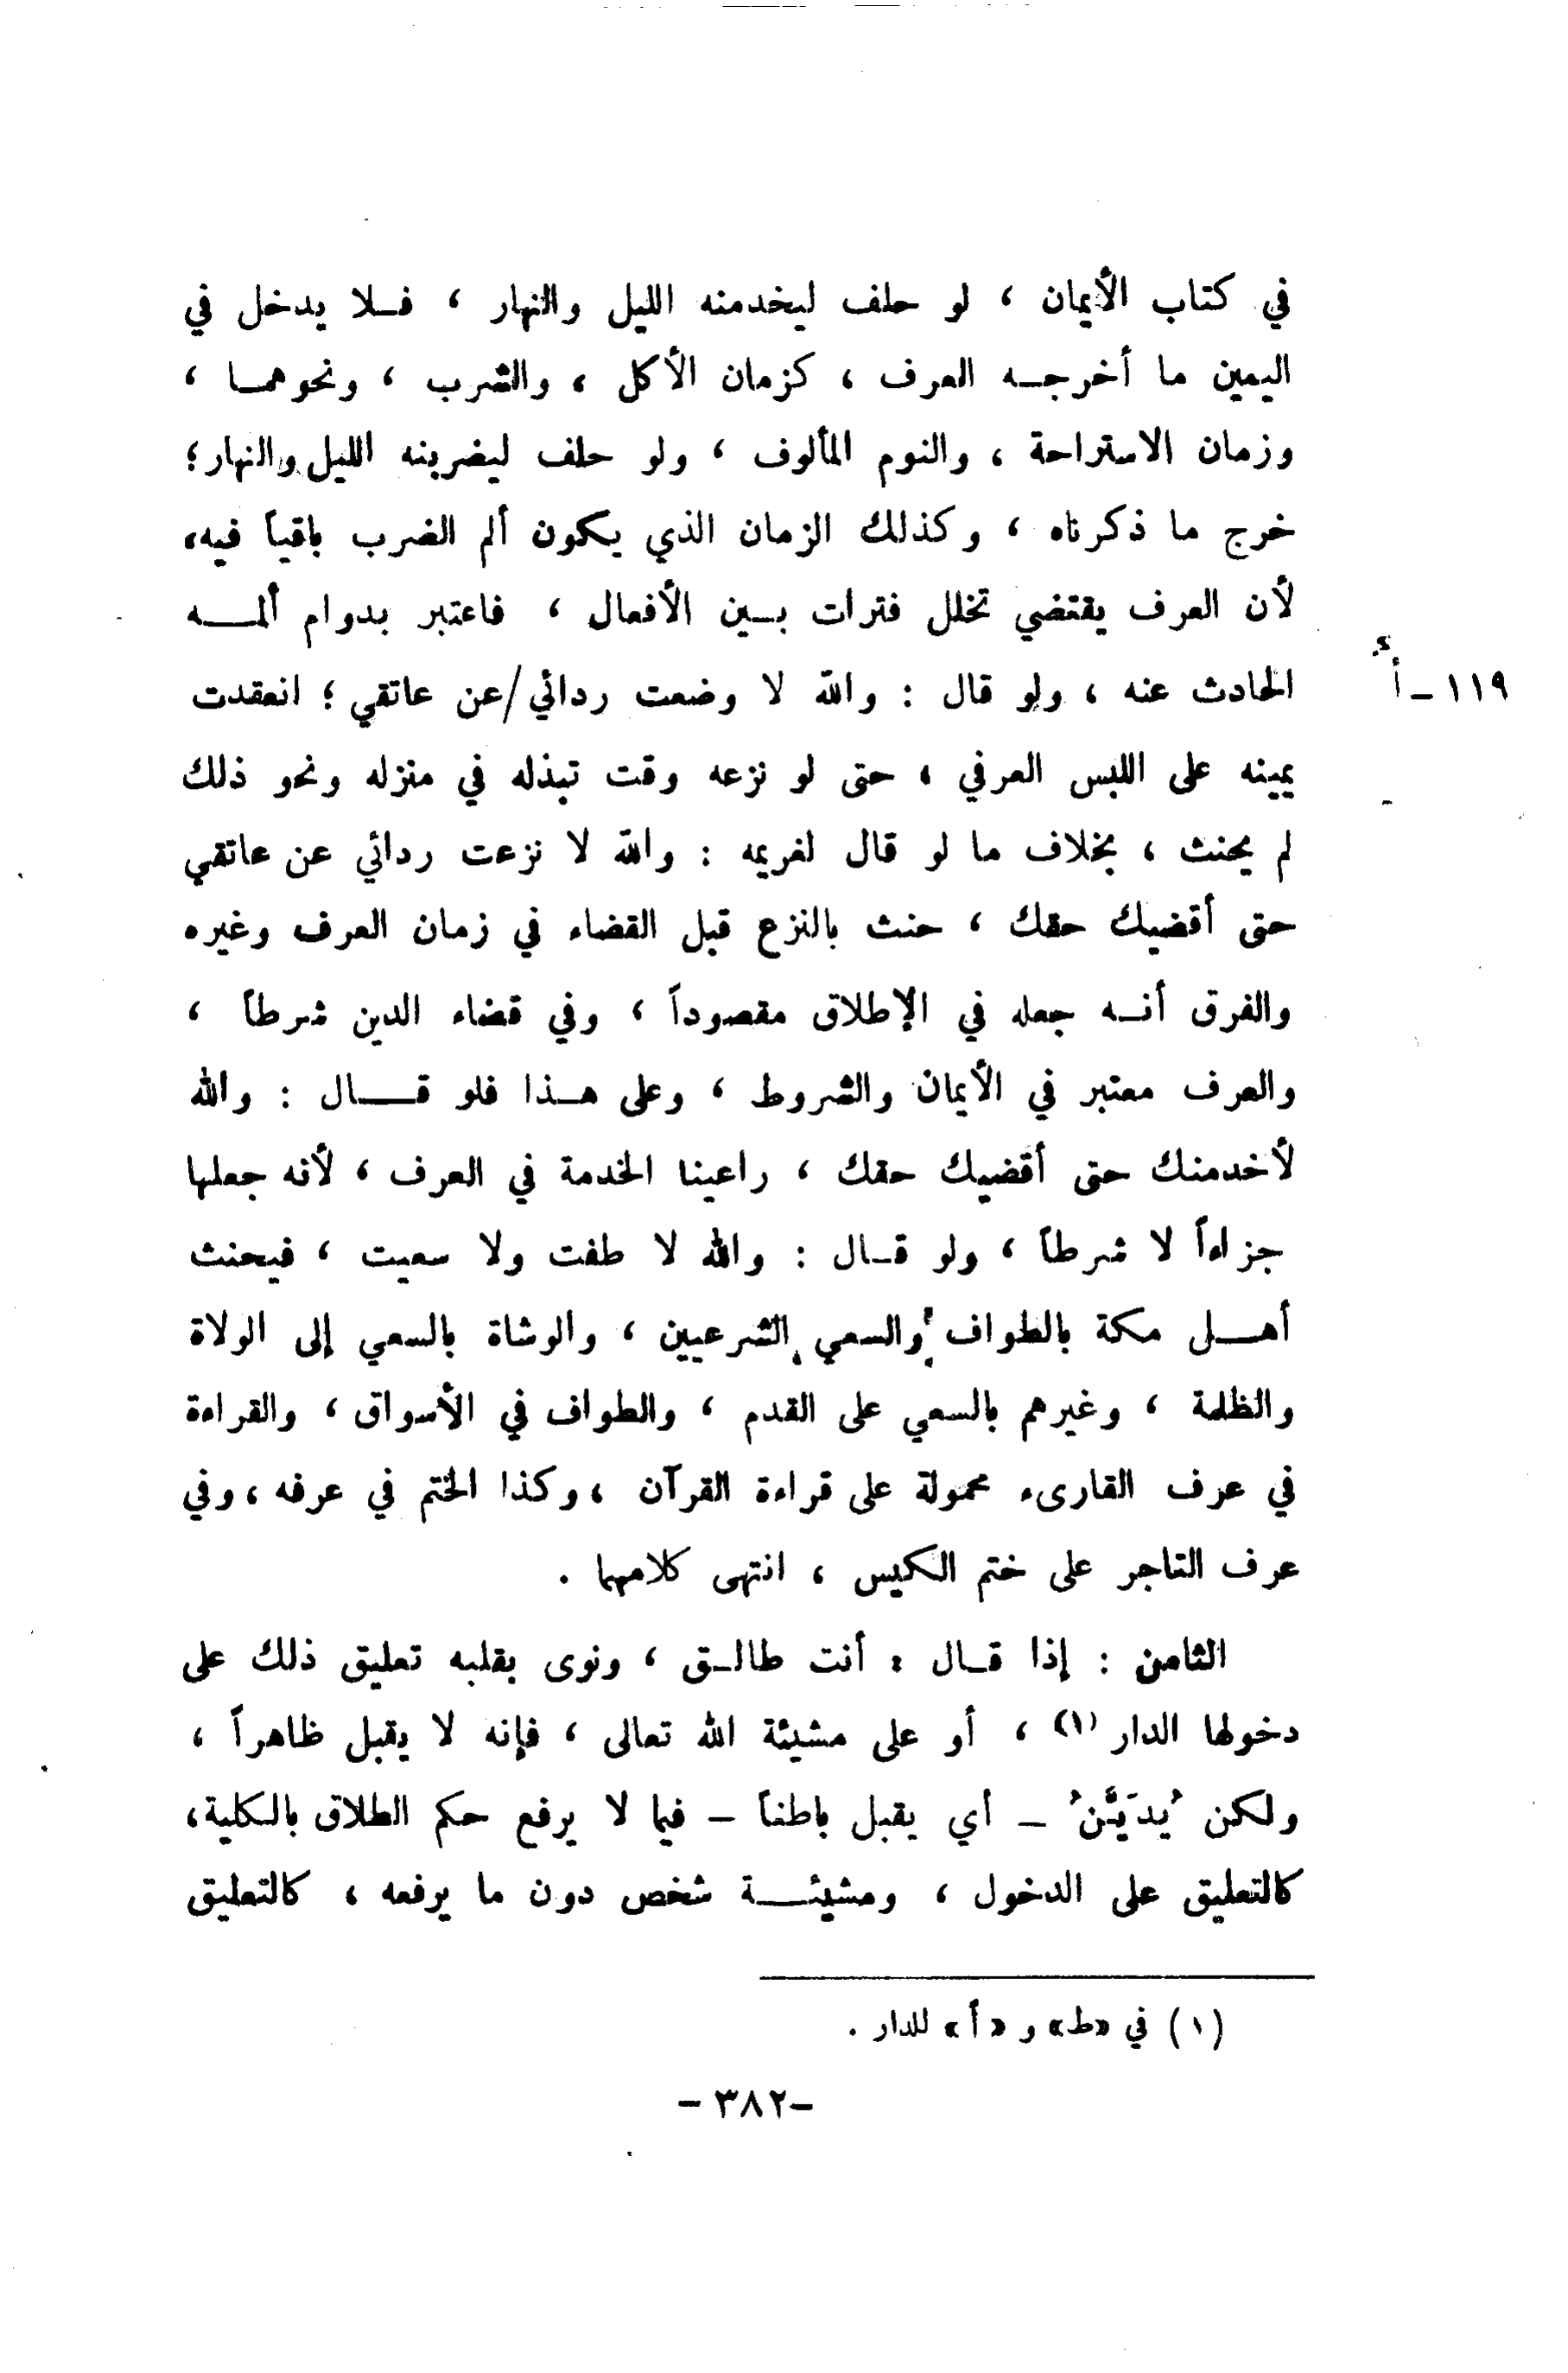 في كتاب الأيمان ، لو حلف ليخدمنه الليل والنهار ، فلا يدخل في
اليمين ما أخرجه العرف ، كزمان الأكل ، والشرب ، ونحوهما ،
وزمان الاستراحة ، والنوم المألوف ، ولو حلف ليضربنه الليل والنهار؛
خرج ما ذكرناه ، وكذلك الزمان الذي يكون ألم الضرب باقياً فيه،
لأن العرف يقتضي تخلل فترات بين الأفعال ، فاعتبر بدوام ألمه
الحادث عنه ، ولو قال : والله لا وضعت ردائي/عن عاتقي ؛ انعقدت
١١٩ - أ
يمينه على اللبس العرفي ، حتى لو نزعه وقت تبذله في منزله ونحو ذلك
لم يحنث ، بخلاف ما لو قال لغريمه : والله لا نزعت ردائي عن عاتقي
حتى أقضيك حقك ، حنث بالنزع قبل القضاء في زمان العرف وغيره
والفرق أنه جعله في الإطلاق مقصوداً ، وفي قضاء الدين شرطاً ،
والعرف معتبر في الأيمان والشروط ، وعلى هذا فلو قال : والله
لأخدمنك حتى أقضيك حقك ، راعينا الخدمة في العرف ، لأنه جعلها
جزاءاً لا شرطاً ، ولو قال : والله لا طفت ولا سعيت ، فيحنث
أهل مكة بالطواف والسعي الشرعيين ، والوشاة بالسعي إلى الولاة
والظلمة ، وغيرهم بالسعي على القدم ، والطواف في الأسواق ، والقراءة
في عرف القارىء محمولة على قراءة القرآن ، وكذا الختم في عرفه ، وفي
عرف التاجر على ختم الكيس ، انتهى كلامهما .
الثامن : إذا قال : أنت طالق ، ونوى بقلبه تعليق ذلك على
دخولها الدار (١) ، أو على مشيئة الله تعالى ، فإنه لا يقبل ظاهراً ،
ولكن يُدَيَّنُ - أي يقبل باطناً - فيما لا يرفع حكم الطلاق بالكلية،
كالتعليق على الدخول ، ومشيئة شخص دون ما يرفعه ، كالتعليق
(١) في «ط» و «أ» للدار .
-٣٨٢ -